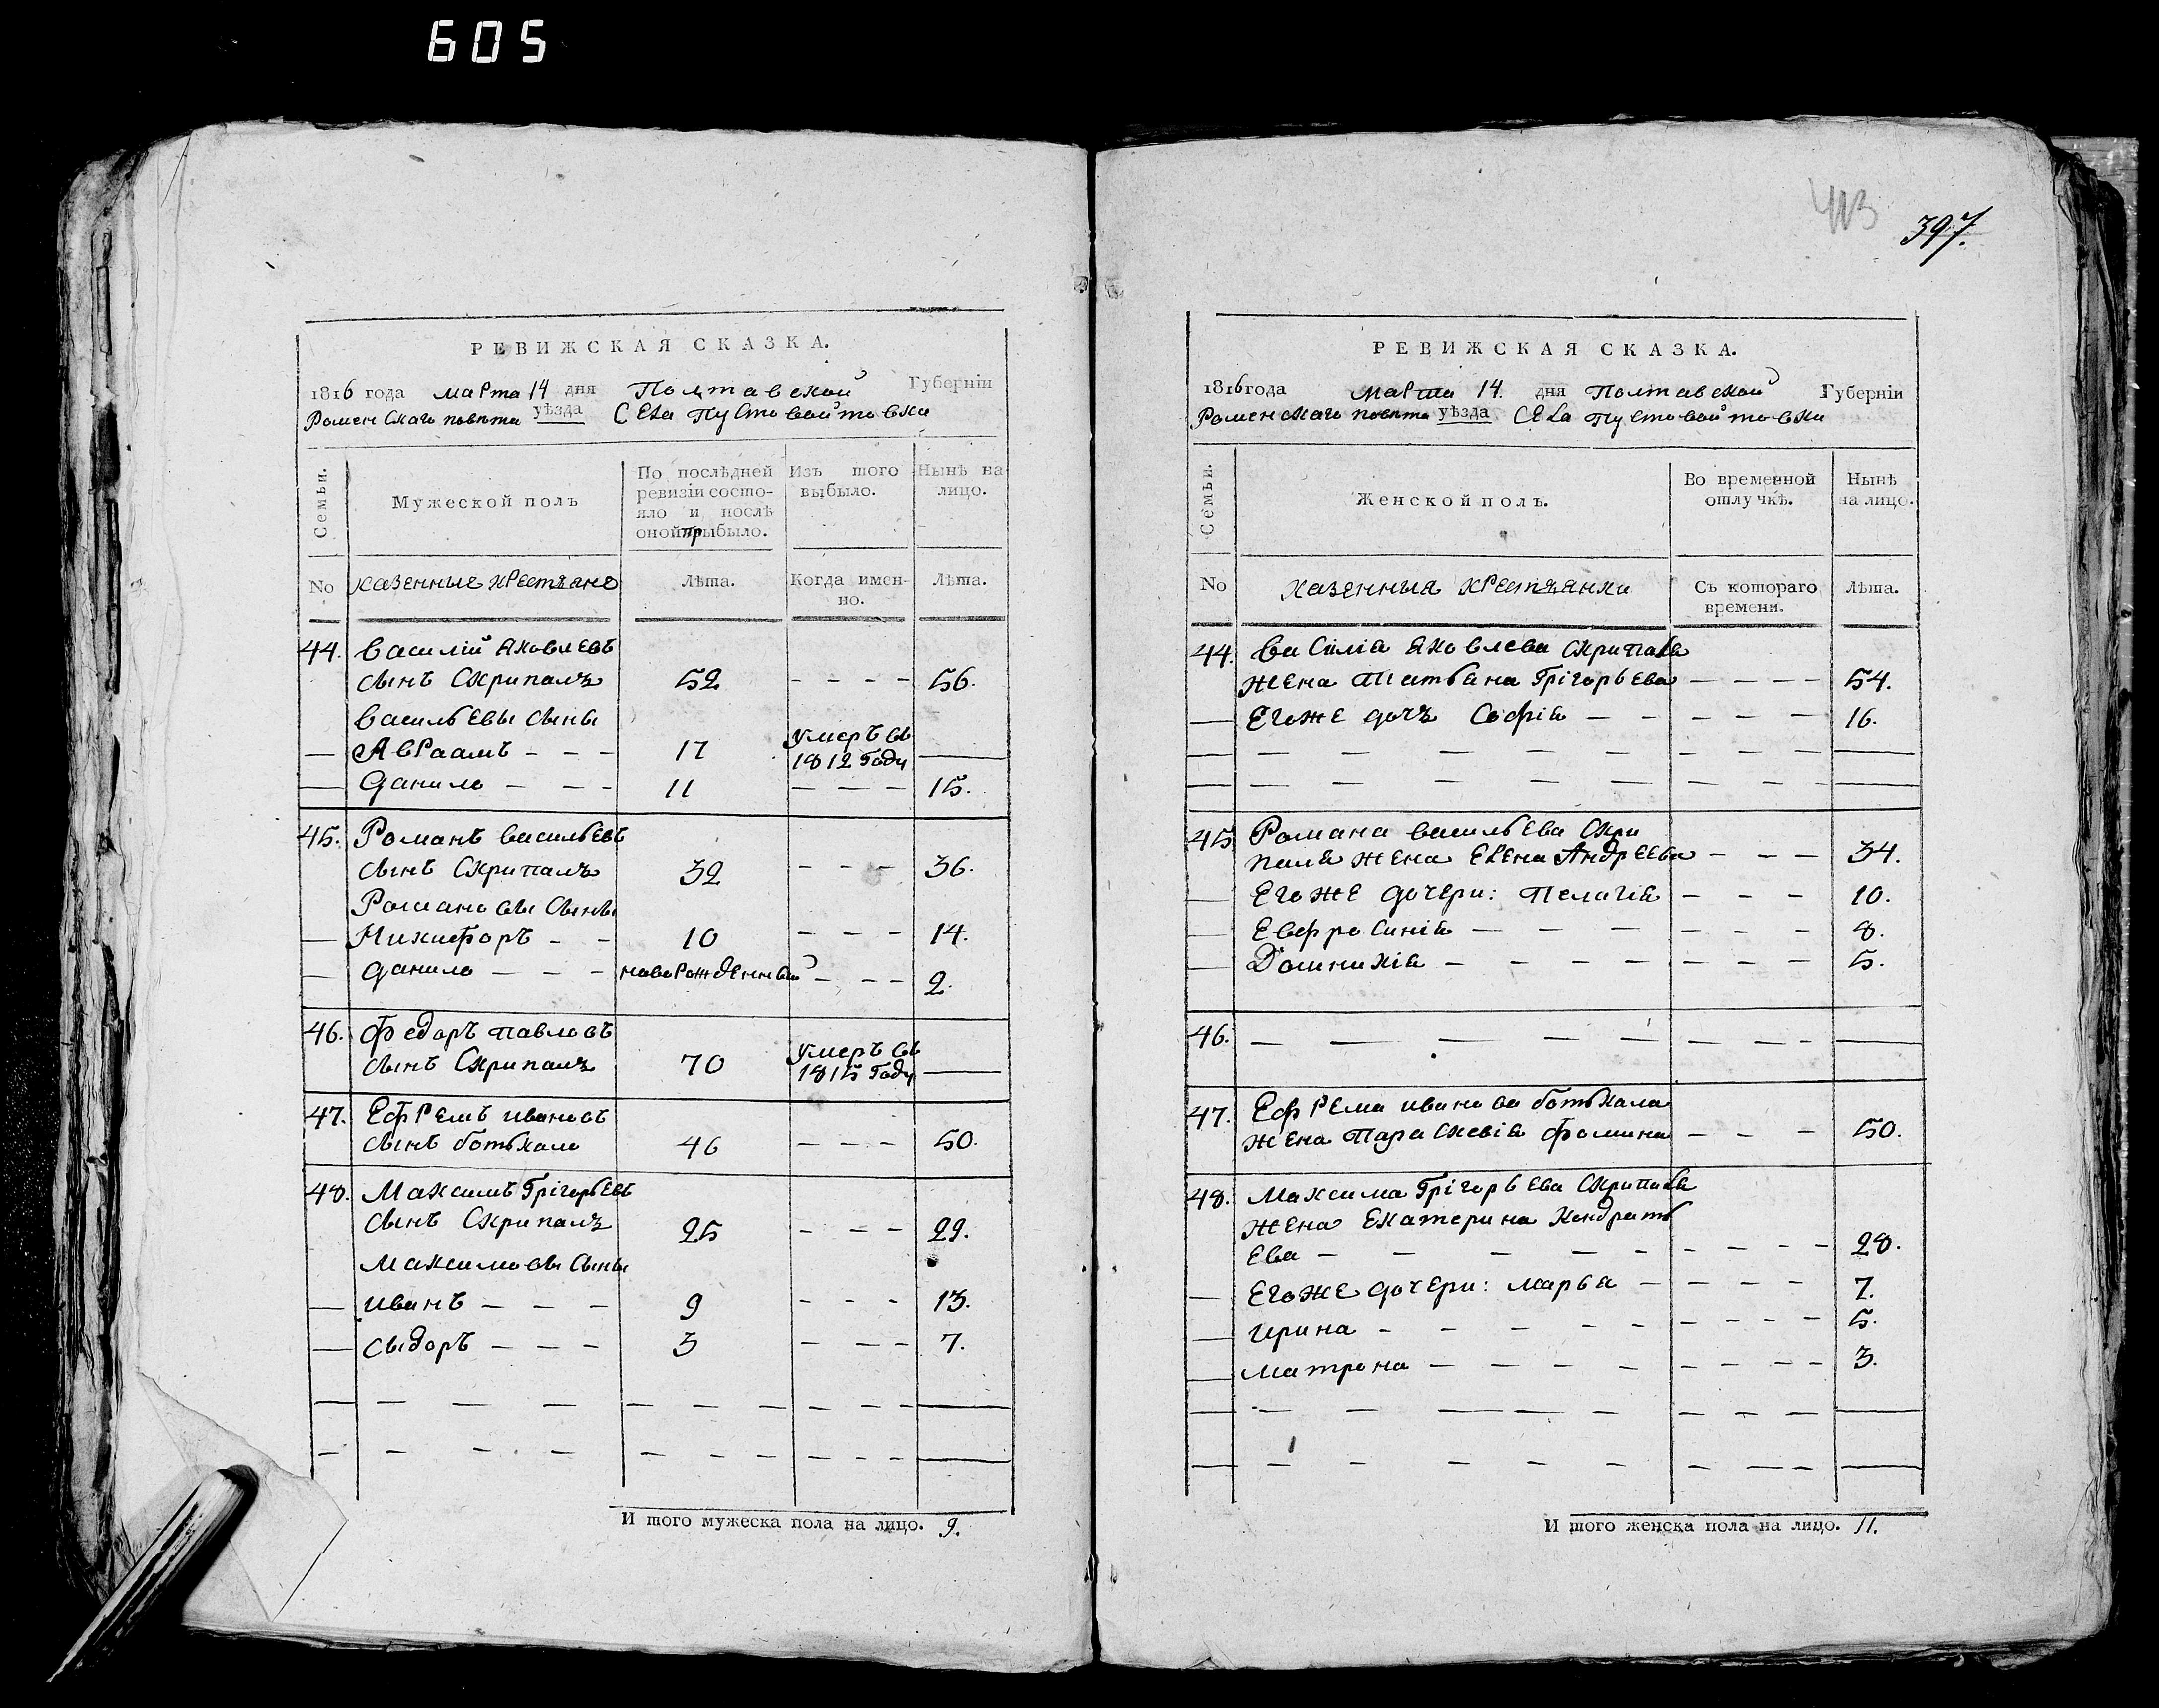 605
РЕВИЖСКАЯ СКАЗКА.
1816 года марта 14 дня Полтавской Губерніи
Роменскаго повѣта уѣзда Села Пустовойтовки
Семьи.
Мужеской полъ
По послѣдней ревизіи состояло и послѣ оной прибыло.
Изъ того выбыло.
Нынѣ на лицо.
No
казенные крестьяне
Лѣта.
Когда именно.
Лѣта.
44. Василій Яковлевъ
сынъ Скрипаль 52 - - - - 56.
Васильевы сыны
— Авраамъ - - - 17 умеръ въ 1812 году —
— Данило - - - 11 - - - 15.
45. Романъ Васильевъ
сынъ Скрипаль 32 - - - 36.
Романовы сыны
— Никифоръ - - 10 - - - 14.
— Данило - - - новорожденный - - - 2.
46. Федоръ Павловъ
сынъ Скрипаль 70 умеръ въ 1815 году —
47. Ефремъ Ивановъ
сынъ Ботькало 46 - - - 50.
48. Максимъ Грігорьевъ
сынъ Скрипаль 25 - - - 29.
Максимовы сыны
— Иванъ - - - 9 - - - 13.
— Сыдоръ - - - 3 - - - 7.
И того мужеска пола на лицо. 9.
413
397.
РЕВИЖСКАЯ СКАЗКА.
1816 года Марта 14. дня Полтавской Губерніи
Роменскаго повѣта уѣзда Села Пустовойтовки
Семьи.
Женской полъ.
Во временной отлучкѣ.
Нынѣ на лицо.
No
казенныя крестьянки
Съ котораго времени.
Лѣта.
44. Василія Яковлева Скрипаля
жена Татьяна Грігорьева - - - - 54.
— Егоже дочь Софія - - - - - 16.
45. Романа Васильева Скри
паля жена Елена Андреева - - - 34.
— Егоже дочери: Пелагія - - - 10.
— Евфросинія - - - - - - - 8.
— Домникія - - - - - - - - 5.
46.
47. Ефрема Иванова Ботькала
жена Параскевія Фомина - - - 50.
48. Максима Грігорьева Скрипаля
жена Екатерина Кондрать
ева - - - - - - - - - 28.
— Егоже дочери: Марья - - - - 7.
— Ирина - - - - - - - - - 5.
— Матрона - - - - - - - - 3.
И того женска пола на лицо. 11.